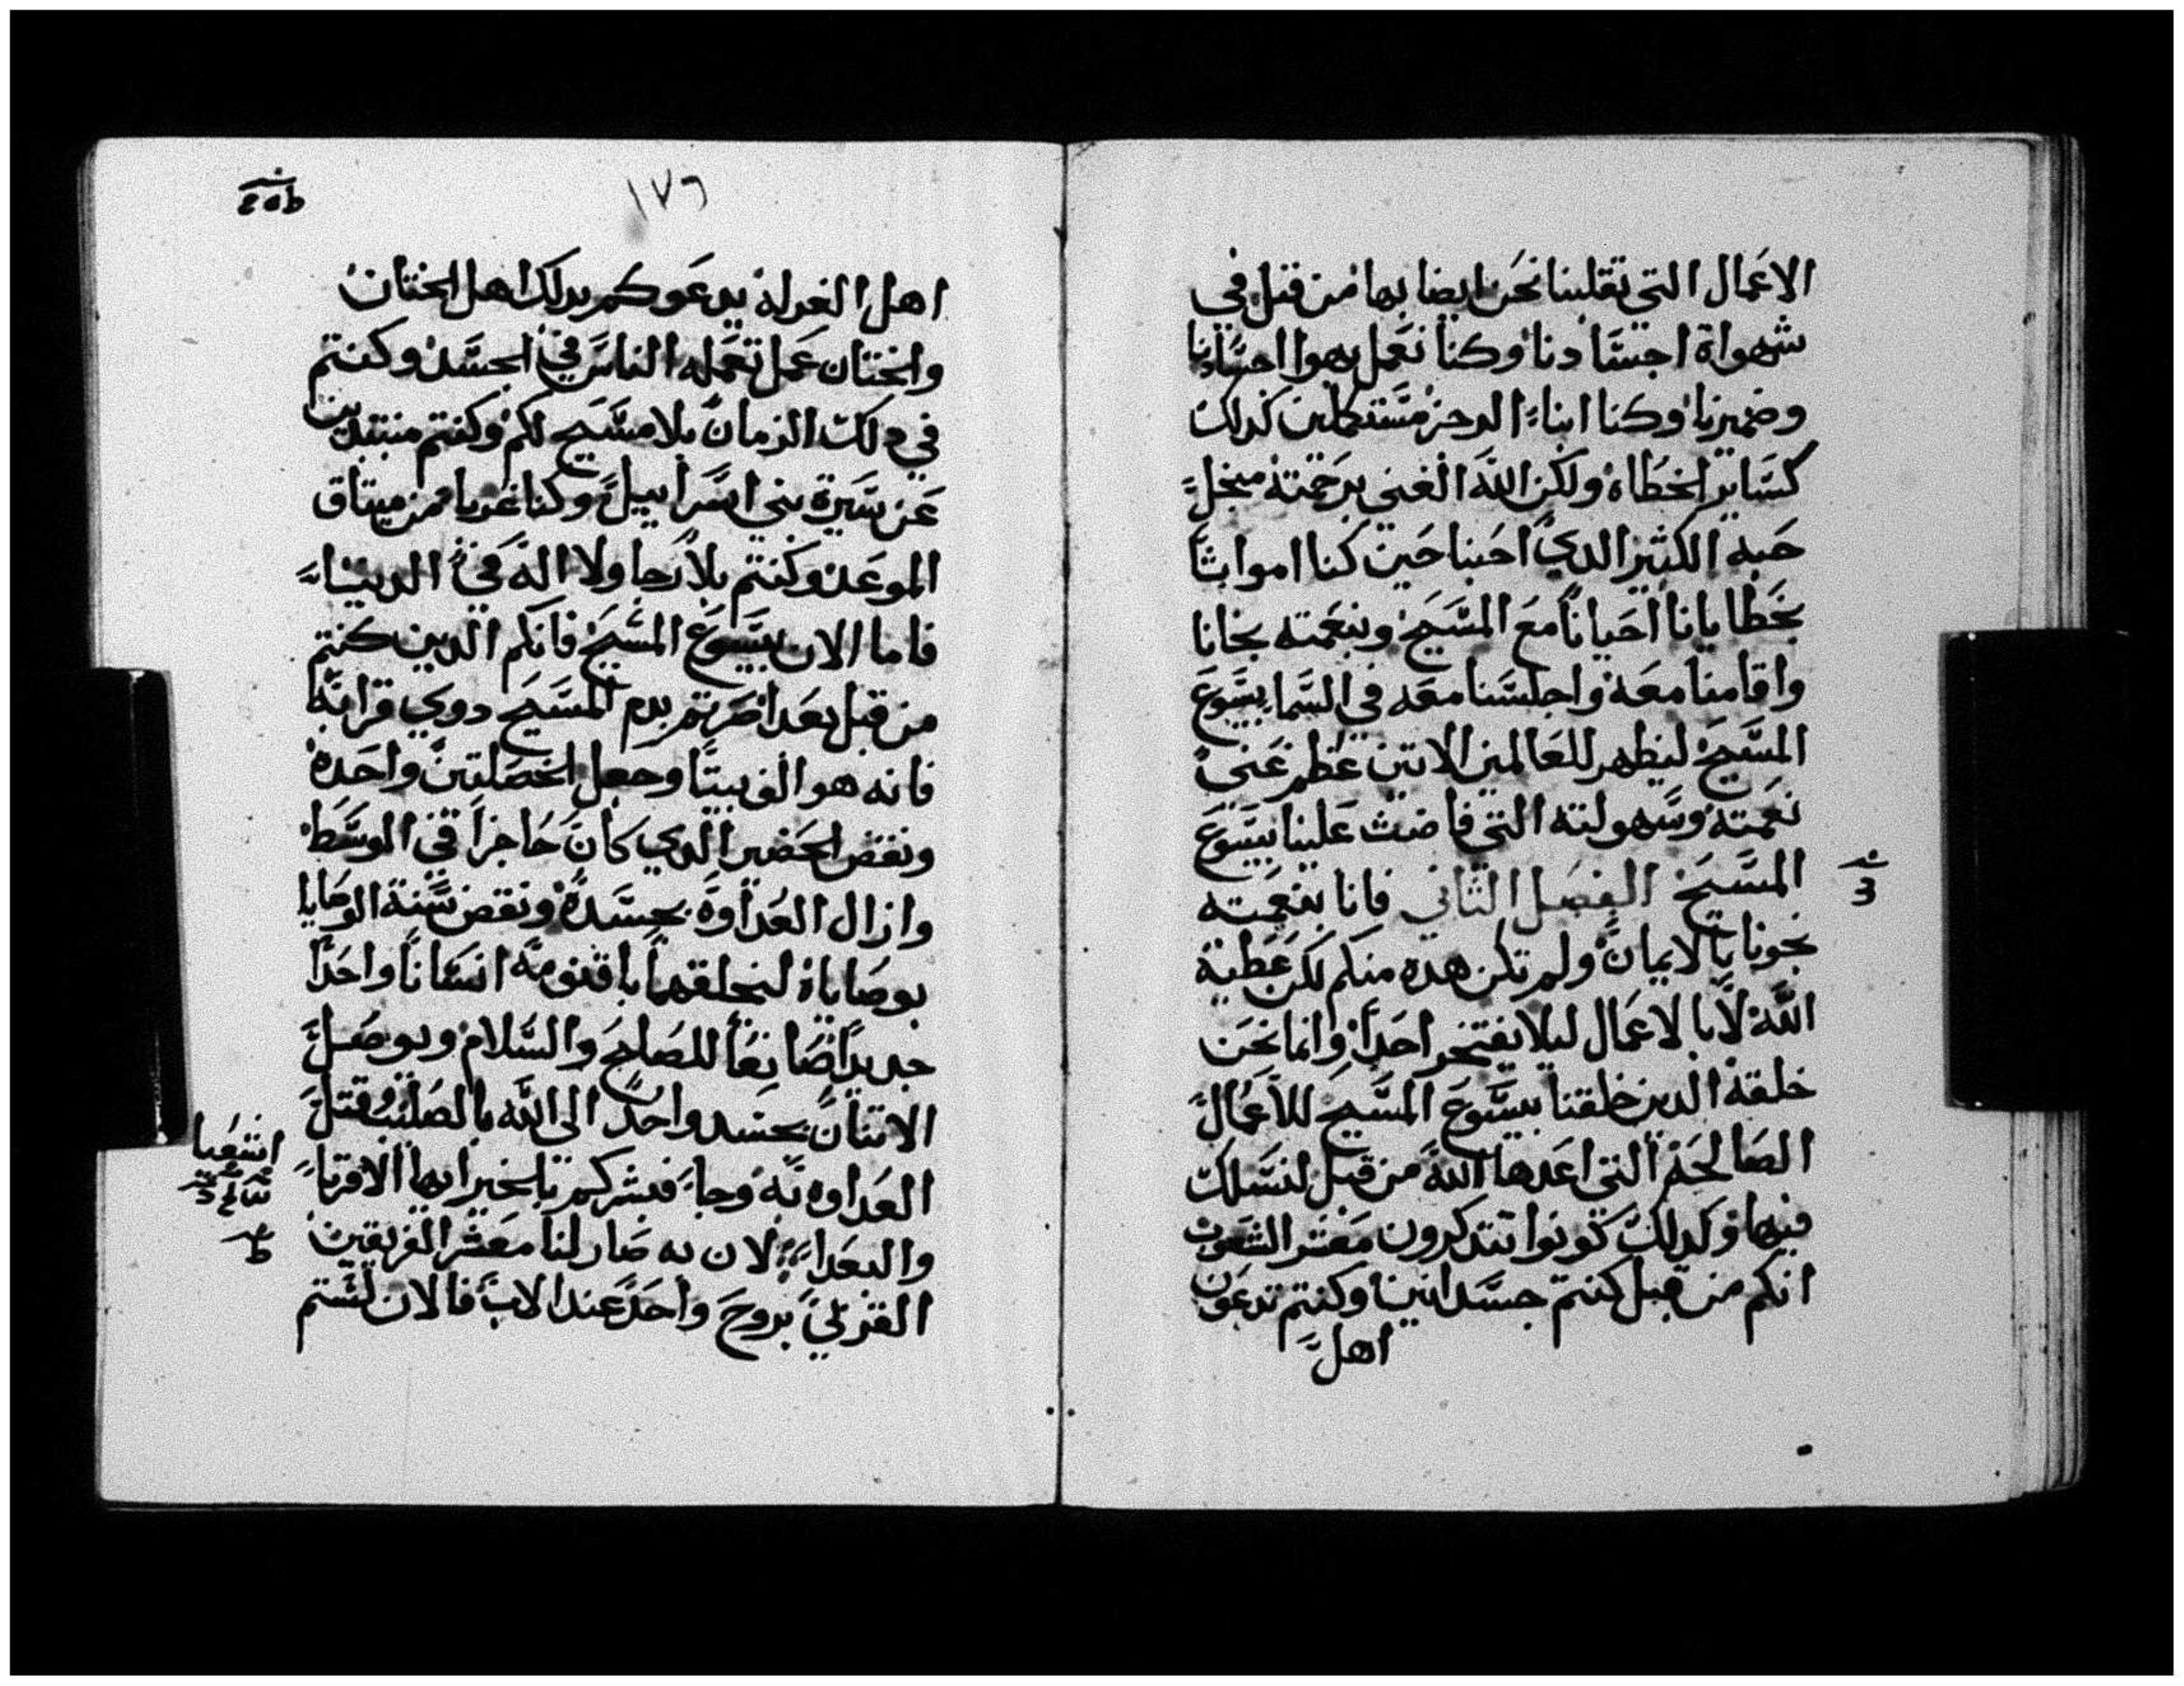 الاعمال التي تقلبنا نحن ايضا بها من قبل في
شهواة اجسادنا وكنا نعمل بهوا اجسادنا
وضميرنا وكنا ابناء الدحز مستكملين كدلك
كساير الخطاه ولكن الله الغني برحمته منجل
حبه الكثير الدي احبنا حين كنا امواتا
بخطايانا احيانا مع المسيح وبنعمته نجانا
واقامنا معه واجلسنا معه في السما بيسوع
المسيح ليظهر للعالمين الاتين عظم غنى
نعمته وسهولته التي فاضت علينا بيسوع
المسيح الفصل الثاني فانا بنعمته
نجونا بالايمان ولم تكن هده منكم لكن عطية
الله لا بالاعمال ليلا يفتخر احدا وانما نحن
خلقة الدين خلقنا بيسوع المسيح للاعمال
الصالحة التي اعدها الله من قبل لنسلك
فيها وكدلك كونوا تتدكرون معشر الشعوب
انكم من قبل كنتم جسدانين وكنتم تدعون
اهل
١٧٦
اهل الغرلة يدعوكم بدلك اهل الختان
والختان عمل تعمله الناس في الجسد وكنتم
في دلك الزمان بلا مسيح لكم وكنتم منتبدين
عن سيرة بني اسراييل وكنا غربا من ميتاق
الموعد وكنتم بلا رجا ولا اله في الدنيا
فاما الان بيسوع المسيح فانكم الدين كنتم
من قبل بعدا صرتم بدم المسيح دوي قرابه
فانه هو الف بيتا وجعل الخصلتين واحده
ونقض الحضير الدي كان حاجزا في الوسط
وازال العداوة بجسده ونقض سنة الوصايا
بوصاياه ليخلقهما باقنومه انسانا واحدا
جديدا صانعا للصلح والسلام ويوصل
الاتنان بجسد واحد الى الله بالصليب وقتل
العداوه به وجا فبشركم بالخير ايها الاقربا
والبعدا لان به صار لنا معشر الفريقين
القربي بروح واحد عند الاب فالان لستم